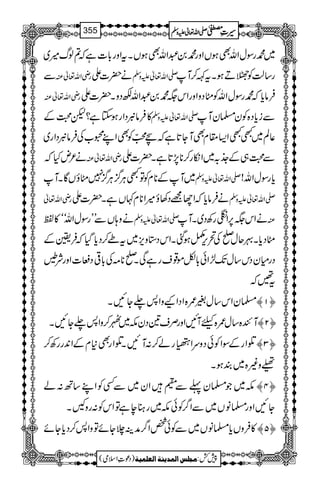 سیرتِ مصطفیٰ صلی اللہ تعالیٰ علیہ وسلم 355
میں محمد رسول اللہ بھی ہوں اور محمد بن عبداللہ بھی ہوں۔ یہ اور بات ہے کہ تم لوگ میری
رسالت کو جھٹلاتے ہو۔ یہ کہہ کر آپ صلی اللہ تعالیٰ علیہ وسلم نے حضرت علی رضی اللہ تعالیٰ عنہ سے
فرمایا کہ محمد رسول اللہ کو مٹا دو اور اس جگہ محمد بن عبداللہ لکھ دو۔ حضرت علی رضی اللہ تعالیٰ عنہ
سے زیادہ کون مسلمان آپ صلی اللہ تعالیٰ علیہ وسلم کا فرمانبردار ہو سکتا ہے؟ لیکن محبت کے
عالم میں کبھی کبھی ایسا مقام بھی آ جاتا ہے کہ سچے محب کو بھی اپنے محبوب کی فرمانبرداری
سے محبت ہی کے جذبہ میں انکار کرنا پڑتا ہے۔ حضرت علی رضی اللہ تعالیٰ عنہ نے عرض کیا کہ
یا رسول اللہ! صلی اللہ تعالیٰ علیہ وسلم میں آپ کے نام کو تو کبھی ہرگز ہرگز نہیں مٹاؤں گا۔ آپ
صلی اللہ تعالیٰ علیہ وسلم نے فرمایا کہ اچھا مجھے دکھاؤ میرا نام کہاں ہے۔ حضرت علی رضی اللہ تعالیٰ
عنہ نے اس جگہ پر انگلی رکھ دی۔ آپ صلی اللہ تعالیٰ علیہ وسلم نے وہاں سے ”رسول اللہ“ کا لفظ
مٹا دیا۔ بہرحال صلح کی تحریر مکمل ہو گئی۔ اس دستاویز میں یہ طے کر دیا گیا کہ فریقین کے
درمیان دس سال تک لڑائی بالکل موقوف رہے گی۔ صلح نامہ کی باقی دفعات اور شرطیں
یہ تھیں کہ
﴿۱﴾ مسلمان اس سال بغیر عمرہ ادا کیے واپس چلے جائیں۔
﴿۲﴾ آئندہ سال عمرہ کیلئے آئیں اور صرف تین دن مکہ میں ٹھہر کر واپس چلے جائیں۔
﴿۳﴾ تلوار کے سوا کوئی دوسرا ہتھیار لے کر نہ آئیں۔ تلوار بھی نیام کے اندر رکھ کر
تھیلے وغیرہ میں بند ہو۔
﴿۴﴾ مکہ میں جو مسلمان پہلے سے مقیم ہیں ان میں سے کسی کو اپنے ساتھ نہ لے
جائیں اور مسلمانوں میں سے اگر کوئی مکہ میں رہنا چاہے تو اس کو نہ روکیں۔
﴿۵﴾ کافروں یا مسلمانوں میں سے کوئی شخص اگر مدینہ چلا جائے تو واپس کر دیا جائے
پیش کش: مجلس المدینة العلمیة (دعوتِ اسلامی)